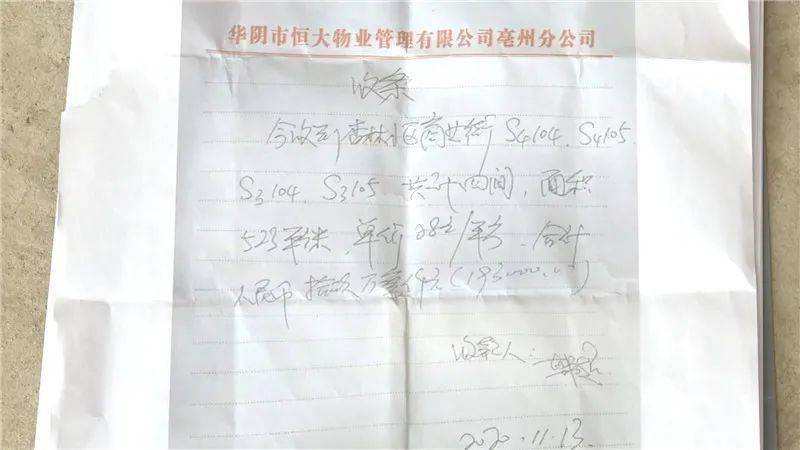 华阴市恒大物业管理有限公司亳州分公司
收条
今收到杏林小区商业街 S4104、S4105
S3104、S3105 共计四间，面积
523平米，单价28元/平方，合计
人民币 拾玖万 仟元(193000.00)
收款人：
2020.11.13